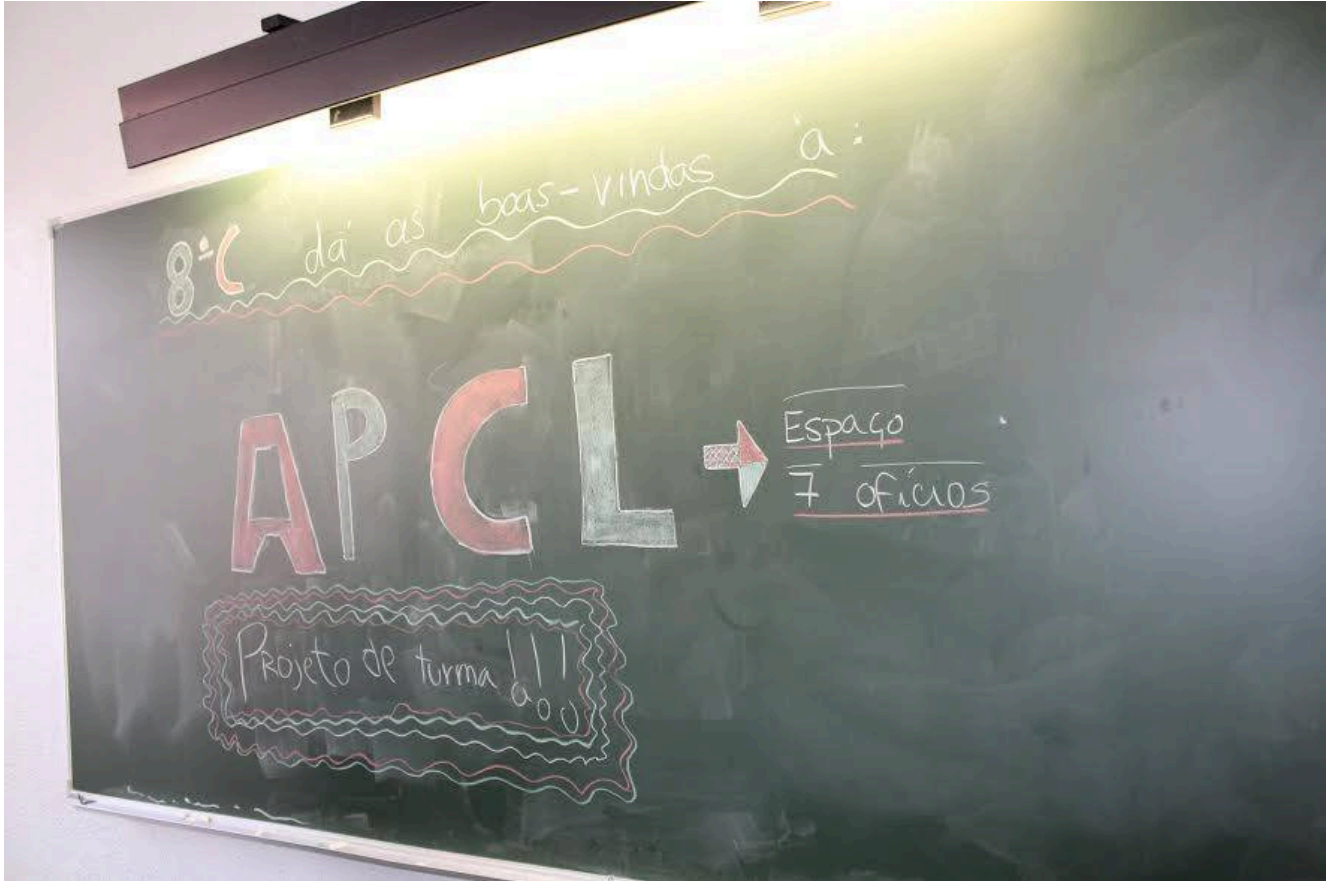 8ºC dá as boas-vindas à:
APCL
Espaço
7 ofícios
Projeto de turma!!!